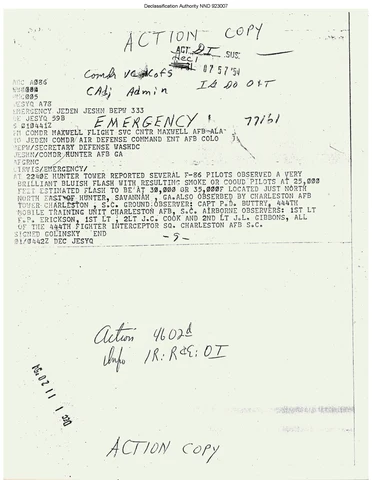 Declassification Authority NND 923007
ACTION COPY
ACT DI SUS.
Comdr VC Cofs
07 57 '54
CAdj Admin
IG DO O&T
A086
JESYQ A78
EMERGENCY JEDEN JESHM BEPW 333
JESYQ 59B
EMERGENCY!
77151
010441Z
COMDR MAXWELL FLIGHT SVC CNTR MAXWELL AFB ALA
JEDEN COMDR AIR DEFENSE COMMAND ENT AFB COLO
SECRETARY DEFENSE WASHDC
JESHM/COMDR HUNTER AFB GA
AFGRNC
/EMERGENCY/
AT 2240E HUNTER TOWER REPORTED SEVERAL F-86 PILOTS OBSERVED A VERY
BRILLIANT BLUISH FLASH WITH RESULTING SMOKE OR COOUD PILOTS AT 25,000
FEET ESTIMATED FLASH TO BE AT 30,000 OR 35,000F LOCATED JUST NORTH
NORTH EAST OF HUNTER, SAVANNAH , GA.ALSO OBSERBED BY CHARLESTON AFB
TOWER CHARLESTON , S.C. GROUND OBSERVER: CAPT P.D. BUTTRY, 444TH
MOBILE TRAINING UNIT CHARLESTON AFB, S.C. AIRBORNE OBSERVERS: 1ST LT
E.P. ERICKSON, 1ST LT ; 2LT J.C. COOK AND 2ND LT J.L. GIBBONS, ALL
OF THE 444TH FIGHTER INTERCEPTOR SQ. CHARLESTON AFB S.C.
SIGNED GOLINSKY END
01/0442Z DEC JESYQ
Action 4602d
Info IR: R&E: OI
ACTION COPY